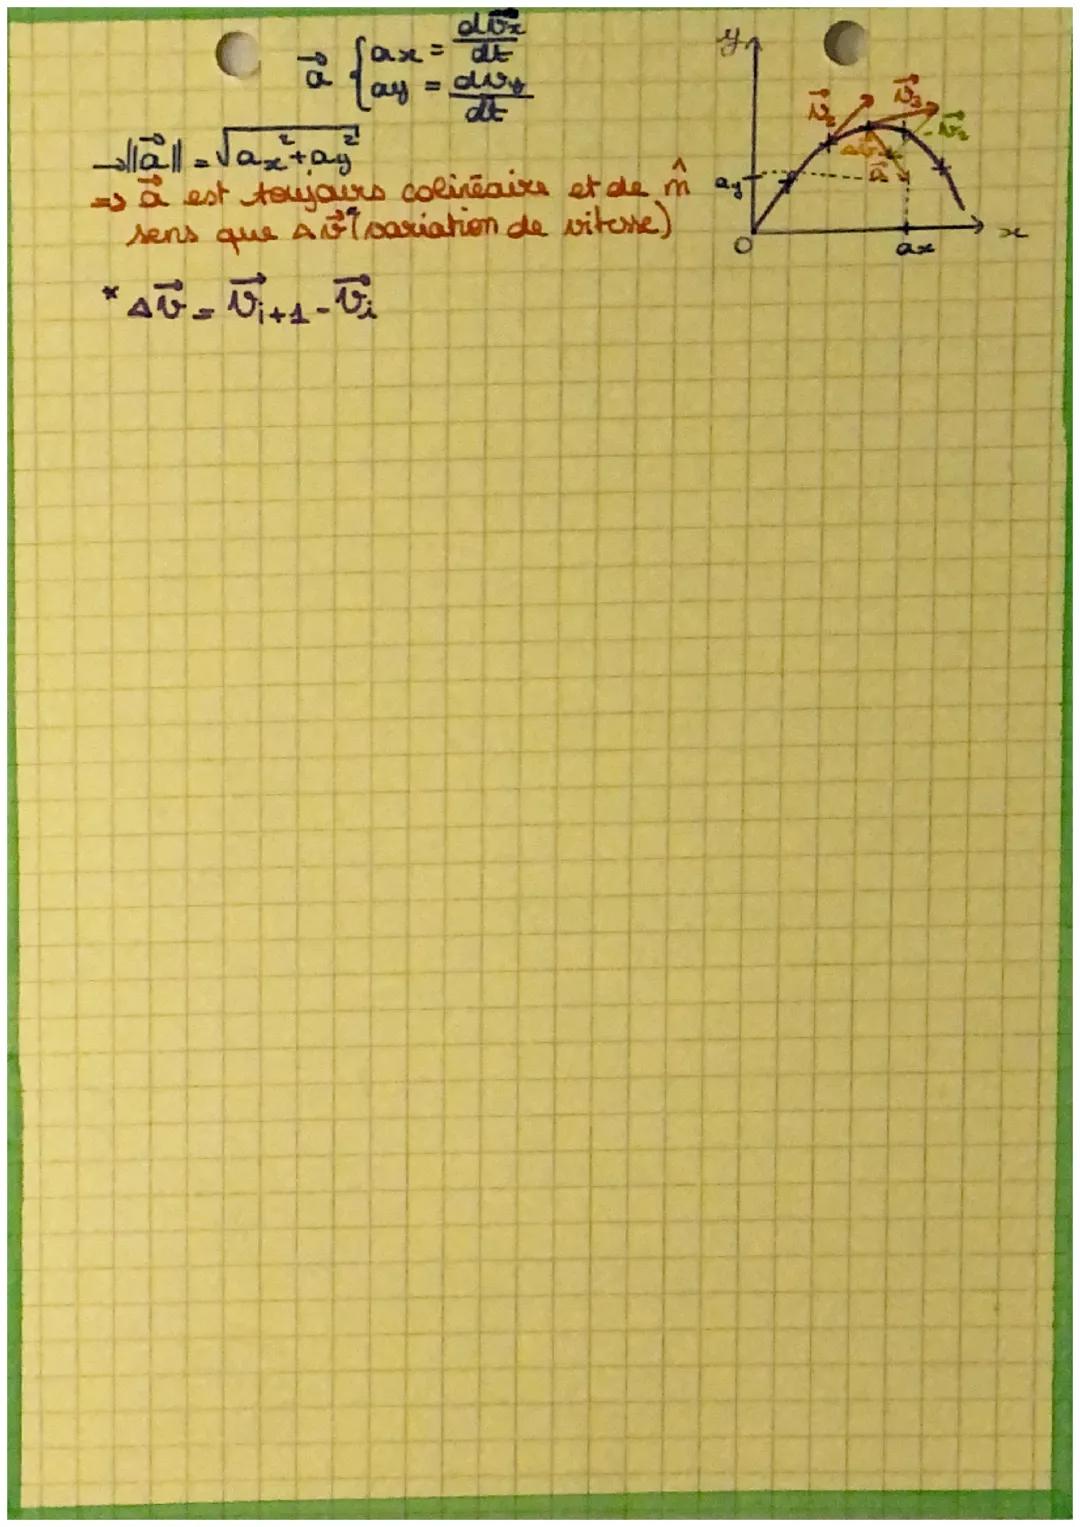 a⃗ { ax = dv⃗x/dt
ay = dvy/dt
→ ||a⃗|| = √ax²+ay²
⇒ a⃗ est toujours colinéaire et de m̂
sens que Δv⃗* (variation de vitesse)
* Δv⃗ = v⃗i+1 - v⃗i
y
v⃗2
v⃗3
-v⃗2
Δv⃗
a⃗
ay
O
ax
x